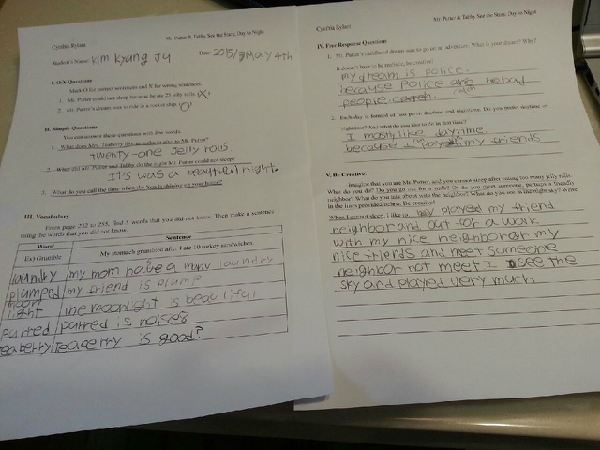 Cynthia Rylant
Mr. Putter & Tabby See the Stars, Day to Night
Student's Name: Kim Kyung Ju
Date: 2015/8/May 4th
I. O/X Questions
Mark O for correct sentences and X for wrong sentences.
1. Mr. Putter could not sleep because he ate 25 jelly rolls. (X)
2. Mr. Putter's dream was to ride a rocket ship. (O)
II. Simple Questions
You can answer these questions with few words.
1. What does Mrs. Teaberry
twenty-one Jelly rous.
2. What did Mr. Putter and Tabby do the night Mr. Putter could not sleep?
It's was a beautiful night.
3. What do you call the time when the Sun is shining in your home?
III. Vocabulary
From page 232 to 255, find 5 words that you did not know. Then make a sentence
using the words that you did not know.
Word Sentence
Ex) Grumble My stomach grumbled after I ate 10 turkey sandwiches.
laundry my mom have a many laundry
plumped my friend is plump
moon light the moonlight is beautiful
purred purred is noises
teaberry Teaberry is good?
Cynthia Rylant
Mr. Putter & Tabby See the Stars, Day to Night
IV. Free Response Questions
1. Mr. Putter's childhood dream was to go on an adventure. What is your dream? Why?
It doesn't have to be realistic, be creative!
my dream is police.
because police are
people
2. Each day is formed of two parts: daytime and nighttime. Do you prefer daytime or
nighttime? And what do you like to do in that time?
I mostly like daytime
because I played my friends
V. Be Creative
Imagine that you are Mr. Putter, and you cannot sleep after eating too many jelly rolls.
What do you do? Do you go out for a walk? Or do you meet someone, perhaps a friendly
neighbor? What do you talk about with the neighbor? What do you see in the night sky?
in the lines provided below, be creative!
When I cannot sleep, I like to play played my friend
neighbor and out for a walk
with my nice neighbor or my
nice friends and meet someone
neighbor not meet I see the
sky and played very much.